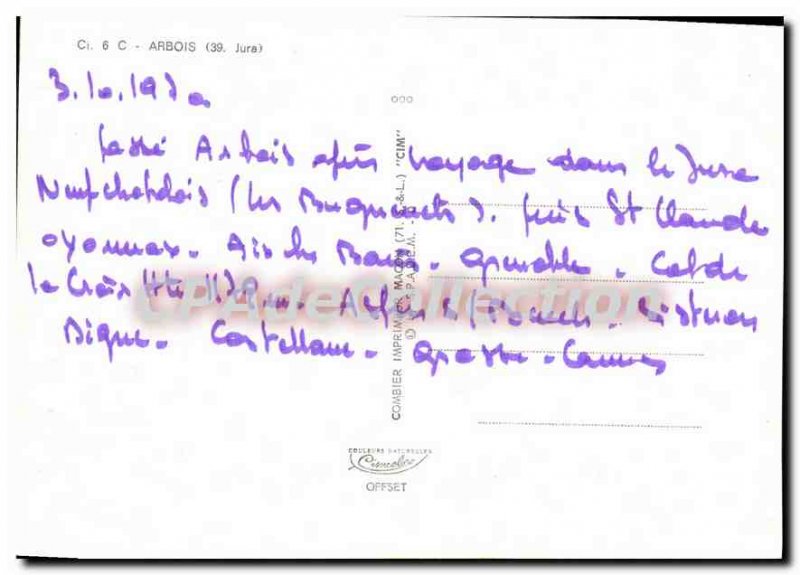 Ci. 6 C - ARBOIS (39. Jura)
3.10.1970
Passé Arbois après voyage dans le Jura
Neufchatelois (les ). Puis St Claude
Oyonnax. Aix les Bains. Grenoble. Col de
la Croix Hte 1179m. Sisteron
Digne. Castellane. Grasse. Cannes
COMBIER IMPRIMEUR MACON (71. S-&-L.) "CIM"
CPAdeCollection
COULEURS NATURELLES
Cimcolor
OFFSET